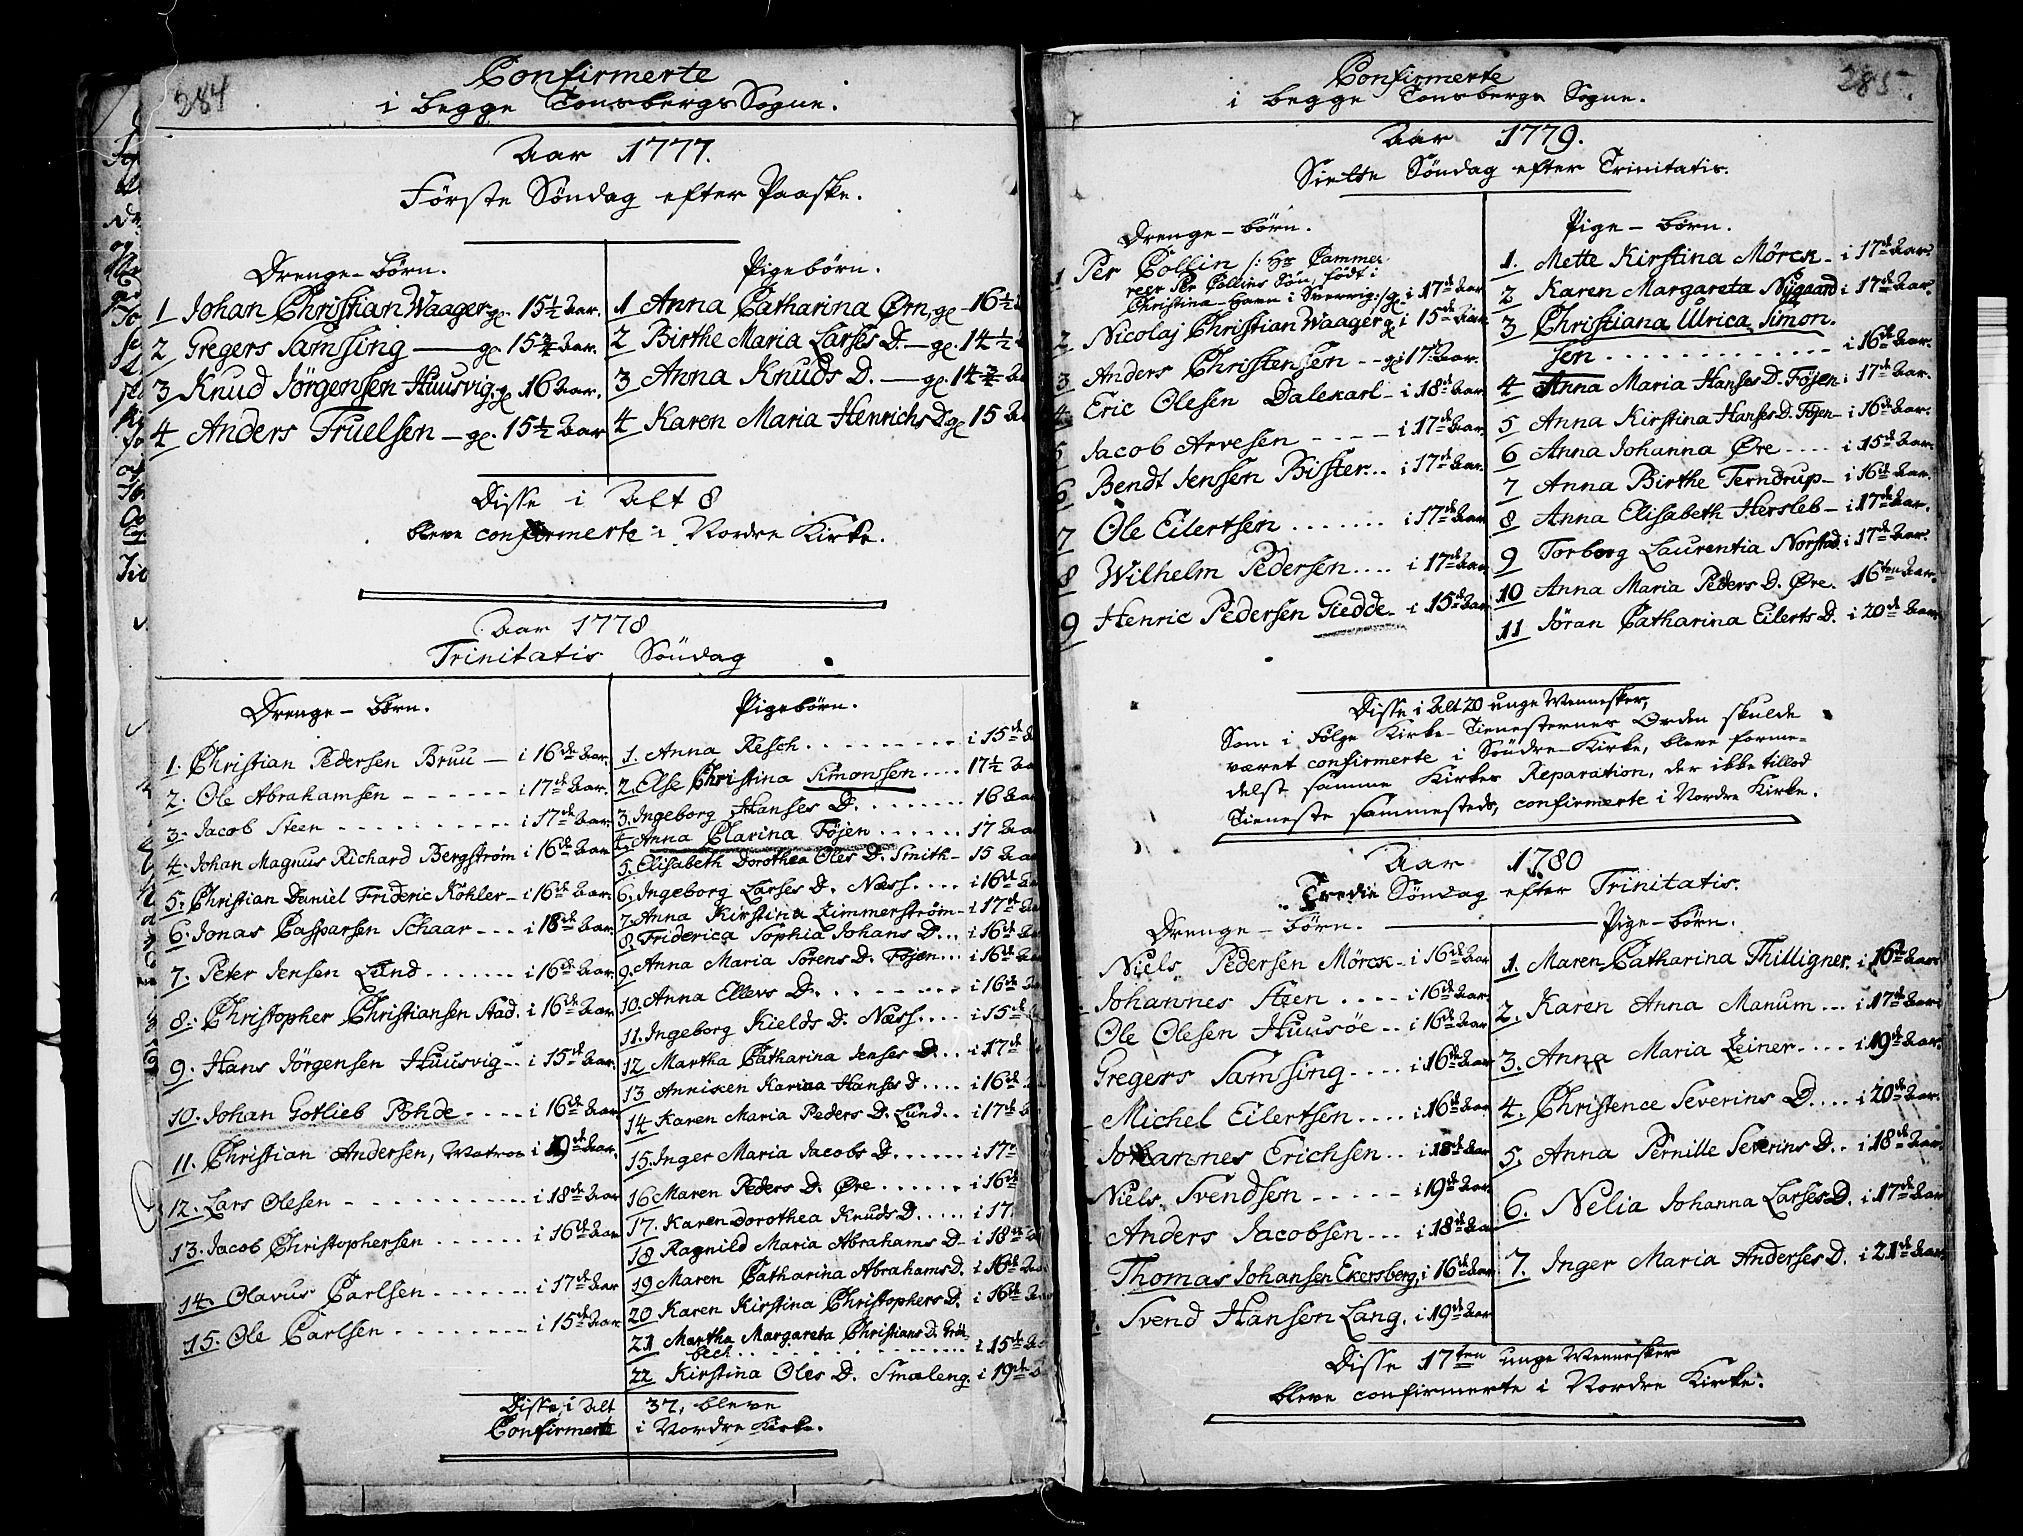 284
Confirmerte
i begge TonsbergsSogne.
Aar 1777.
Første Søndag efter Paaske.
Drenge-børn.
1 Johan Christian Waager gl. 15½ Aar.
2 Gregers Samsing — gl. 15¾ Aar.
3 Knud Jörgensen Huusvig gl. 16 Aar.
4 Anders Truelsen — gl. 15½ Aar
Pigebörn.
1 Anna Catharina Ørn gl. 16½
2 Birthe Maria Larses D. — gl. 14½
3 Anna Knuds D. — gl. 14¾
4 Karen Maria Henrichs D. gl. 15
Disse i Alt 8
bleve confirmerte i Nordre Kirke.
Aar 1778
Trinitatis Søndag
Drenge-børn.
1. Christian Pedersen Bruu — i 16de Aar.
2. Ole Abrahamsen - - - - - - i 17de Aar.
3. Jacob Steen - - - - - - i 17de Aar.
4. Johan Magnus Richard Bergström i 16de Aar
5. Christian Daniel Frideric Kohler - i 16de Aar.
6. Jonas Casparsen Schaar - - - i 18de Aar.
7. Peter Jensen Lund . . . . . . i 16de Aar.
8. Christopher Christiansen Stad. i 16de Aar.
9. Hans Jörgensen Huusvig - - i 15de Aar.
10. Johan Gotlieb Pohde . . . . i 16de Aar
11. Christian Andersen, Matros i 19de Aar.
12. Lars Olesen - - - - - - i 18de Aar
13. Jacob Christophersen . . . . . . i 16de Aar
14. Olavus Carlsen . . . . . . i 17de Aar
15. Ole Carlsen . . . . . . . . i 15de Aar
Pigebörn.
1. Anna Resch . . . . . . . . i 15de
2. Else Christina Simonssen . . . . 17½ Aar
3. Ingeborg Hanses D. . . . . . . 16 Aar
4. Anna Clarina Föjen . . . . . . 17 Aar
5. Elisabeth Dorothea Oles D. Smith - 15 Aar
6. Ingeborg Larses D. Næss . . . . i 16de
7. Anna Kirstina Zimmerström - i 17de Aar
8. Friderica Sophia Johans D. . . i 16de
9. Anna Maria Sörens D. Föjen . . . i 16de Aar
10. Anna Ellevs D. . . . . . . . i 16de
11. Ingeborg Kields D. Næss . . . . i 15de
12 Martha Catharina Jenses D. . . . i 17de
13 Anniken Karina Hanses D . . . . i 16de
14 Karen Maria Peders D. Lund . . i 17de
15. Inger Maria Jacobs D. . . . . . i 17
16 Maren Peders D. Øre . . . . . . i 16de
17. Karen Dorothea Knuds D. . . . . i 17.
18 Ragnild Maria Abrahams D - i 18de
19 Maren Catharina Abrahams D. i 16de
20 Karen Kirstina Christophers D. i 16de
21 Martha Margareta Christians D. Grö-
bech . . . . . . . . . . i 15de
22 Kirstina Oles D. Smaleng. i 19de
Disse, i Alt 37, bleve
Confirmerte i Nordre Kirke.
285
Confirmerte
i begge Tonsbergs Sogne.
Aar 1779.
Siette Søndag efter Trinitatis.
Drenge-börn.
1 Per Collin /: Hr Cammer-
rer Per Collins Søn, født i
Christina-Havn i Sverrig :/ gl. i 17de Aar
2 Nicolaj Christian Waager gl i 15de Aar.
3 Anders Christensen - - gl i 17de Aar.
4 Eric Olesen Dalekarl - i 18de Aar.
5 Jacob Arvesen - - - - i 17de Aar.
6 Bendt Jenssen Bister . . i 17de Aar.
7 Ole Eilertsen . . . . . . . i 17de Aar
8 Wilhelm Pedersen . . . . i 17de Aar
9 Henric Pedersen Giedde - i 15de Aar
Pige-börn.
1. Mette Kirstina Mörck - i 17de Aar.
2 Karen Margareta Nygaard i 17de Aar.
3 Christiana Ulrica Simon-
sen . . . . . . . . . . . . . i 16de Aar.
4 Anna Maria Hanses D. Föjen i 17de Aar.
5 Anna Kirstina Hanses D. Föjen - i 16de Aar.
6 Anna Johanna Øre . . . . i 15de Aar.
7 Anna Birthe Terndrup - i 16de Aar.
8 Anna Elisabeth Hersleb - i 17de Aar.
9 Torborg Laurentia Norstad. i 17de Aar.
10 Anna Maria Peders D. Øre. 16ten Aar.
11 Jöran Catharina Eilerts D. i 20de Aar.
Disse i Alt 20 unge Mennesker,
Som i Følge Kirke-Tienesternes Orden skulde
været confirmerte i Søndre-Kirke, bleve forme-
delst samme Kirkes Reparation, der ikke tillod
Tieneste sammesteds, confirmerte i Nordre Kirke.
Aar 1780
Tredie Søndag efter Trinitatis.
Drenge-börn.
Niels Pedersen Mörck - i 16de Aar
Johannes Steen . . . . i 16de Aar.
Ole Olesen Huusöe . . i 16de Aar
Gregers Samsing . . . . i 16de Aar
Michel Eilertsen . . . . i 16de Aar
Johannes Erichsen . . i 18de Aar
Niels Svendsen - - - - - i 19de Aar.
Anders Jacobsen - - - i 18de Aar
Thomas Johansen Ekersberg, i 16de Aar
Svend Hansen Lang. i 19de Aar
Pige-börn.
1. Maren Catharina Thilligner. i 16de Aar
2. Karen Anna Manum . . . i 17de Aar
3. Anna Maria Zeiner . . . . i 19de Aar.
4. Christence Severins D. . . . i 20de Aar.
5. Anna Pernille Severins D. . i 18de Aar.
6. Nelia Johanna Larses D. i 17de Aar
7. Inger Maria Anderses D. i 21de Aar
Disse 17ten unge Mennesker
bleve confirmerte i Nordre Kirke.